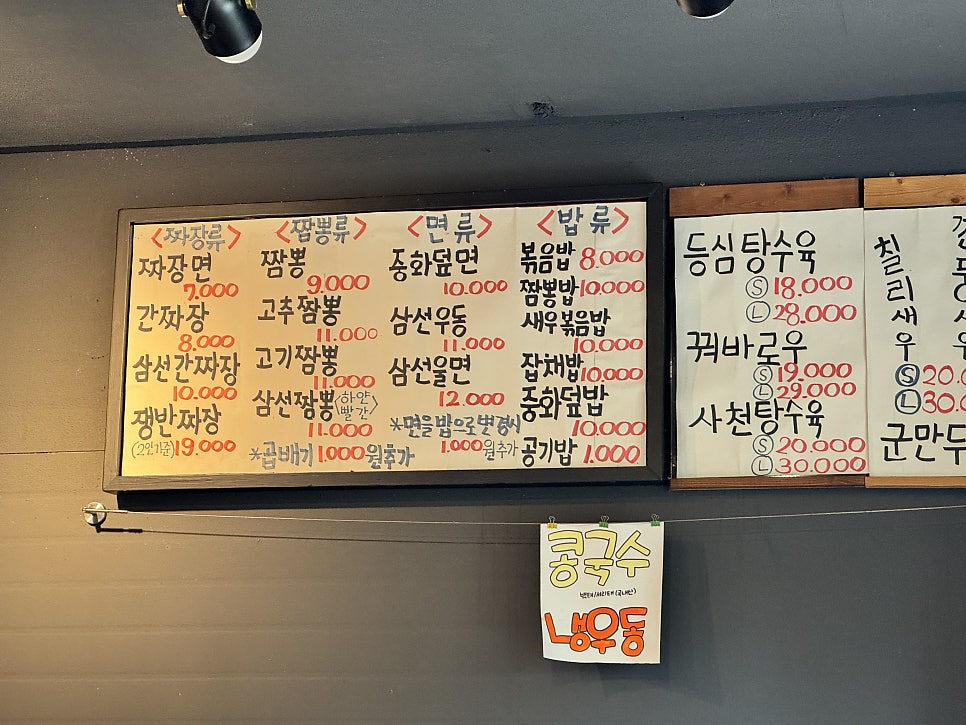 <짜장류>
짜장면
7.000
간짜장
8.000
삼선간짜장
10.000
쟁반짜장
(2인기준) 19.000
<짬뽕류>
짬뽕
9.000
고추짬뽕
11.000
고기짬뽕
11.000
삼선짬뽕 <하얀 빨간>
11.000
*곱배기 1.000원추가
<면류>
중화덮면
10.000
삼선우동
11.000
삼선울면
12.000
*면을밥으로변경시
1.000원추가
<밥류>
볶음밥 8.000
짬뽕밥 10.000
새우볶음밥
10.000
잡채밥 10.000
중화덮밥
10.000
공기밥 1.000
등심탕수육
Ⓢ 18.000
Ⓛ 28.000
꿔바로우
Ⓢ 19.000
Ⓛ 29.000
사천탕수육
Ⓢ 20.000
Ⓛ 30.000
칠리새우
Ⓢ 20.0
Ⓛ 30.0
군만두
콩국수
냉우동